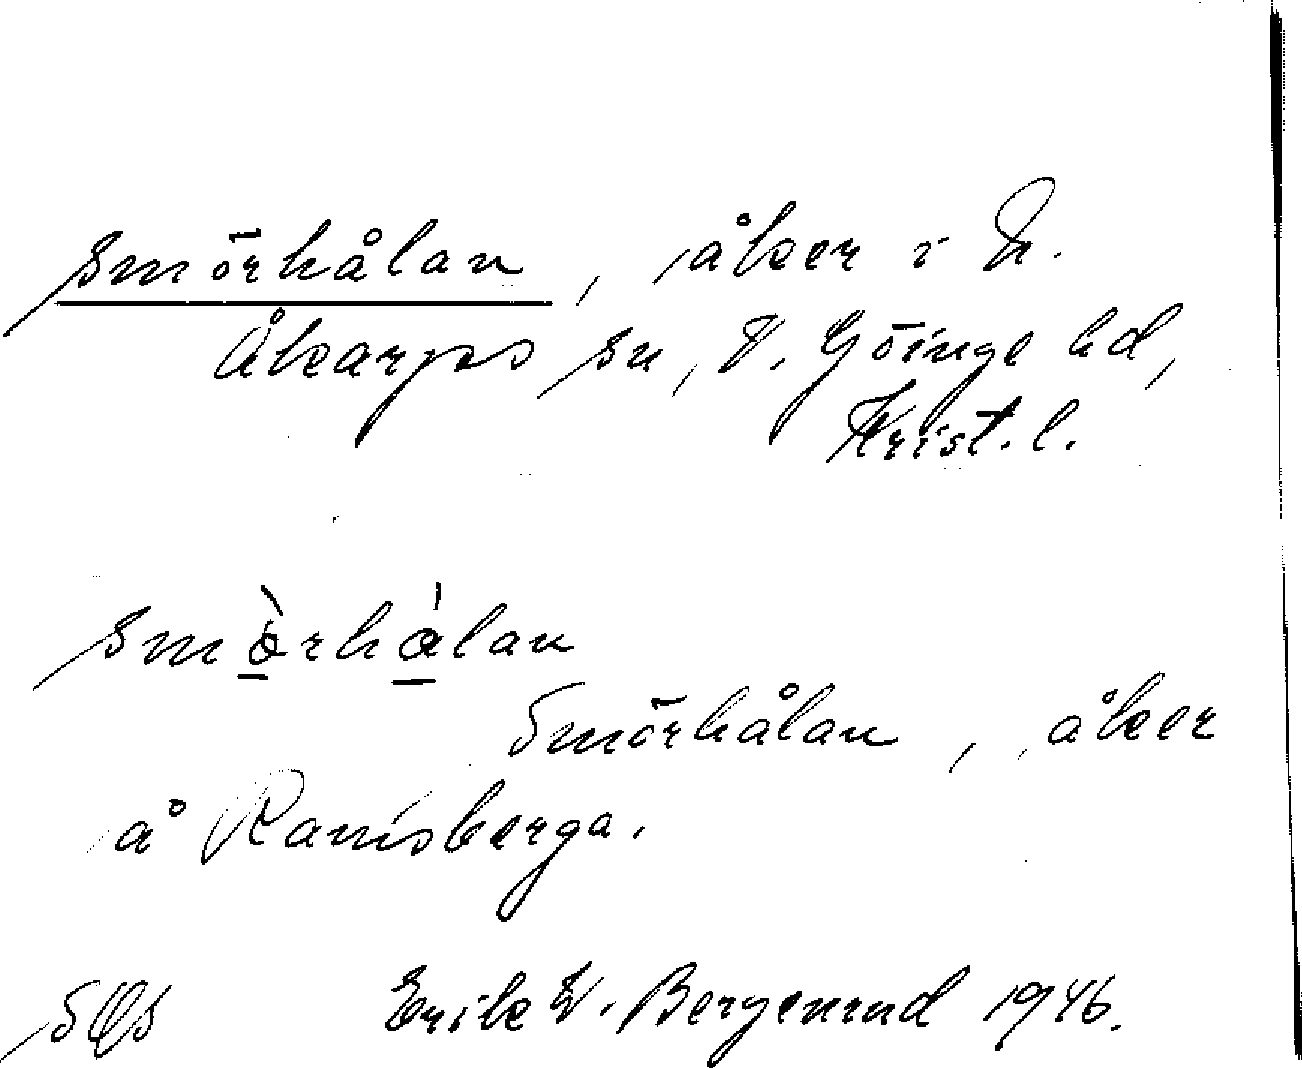 smörhålan, åker i N.
Åkarps sn, V. Göinge hd,
Krist. l.
smö̀rhålan
Smörhålan, åker
å Ramsberga.
Erik W. Bergenrud 1946.